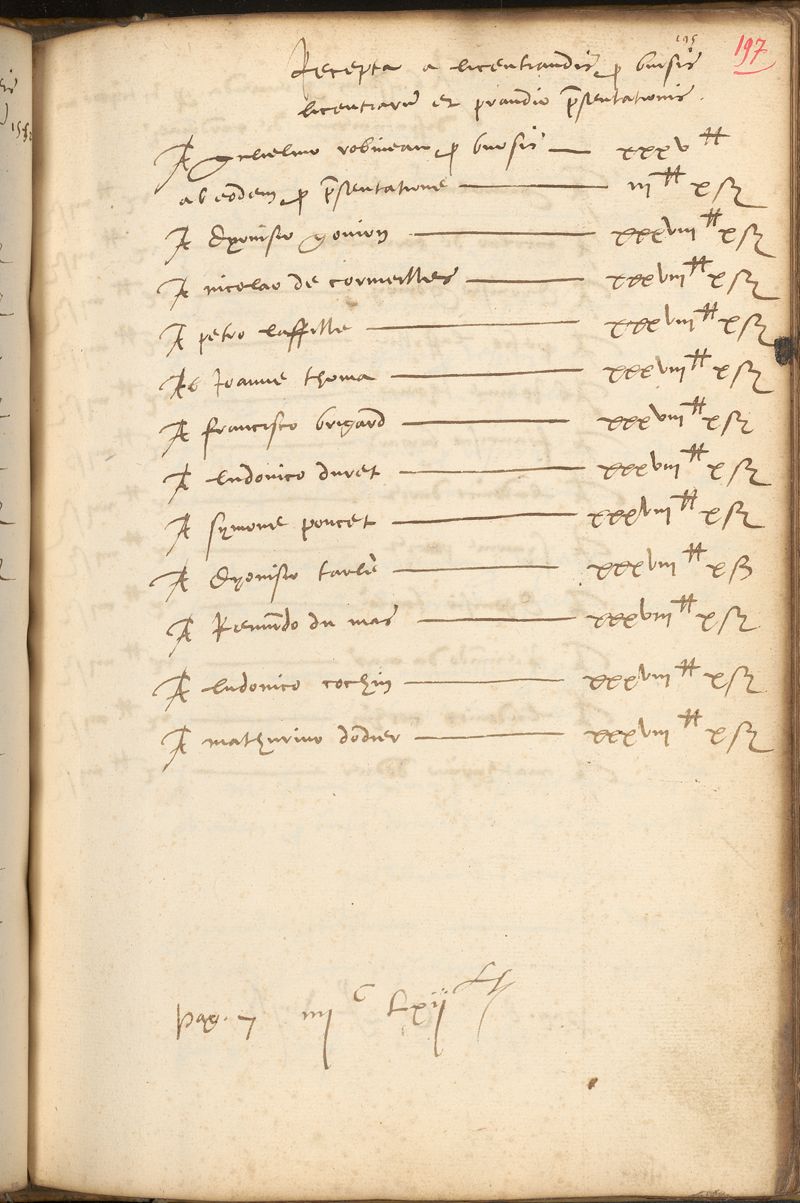 195
197
Recepta a licentiandis p bursis
licentiarū et prandio p̄sentationis .
A guillelmo robineau p bursis — xxxv ⧺
ab eodem p p̄sentatione — iii ⧺ x s
A dyonisio gouion — xxxviii ⧺ x s
A nicolao de cormeilles — xxxviii ⧺ x s
A petro laffille — xxxviii ⧺ x s
Ab Joanne thoma — xxxviii ⧺ x s
A francisco brigard — xxxviii ⧺ x s
A ludovico duret — xxxviii ⧺ x s
A symone poncet — xxxviii ⧺ x s
A dyonisio tarlé — xxxviii ⧺ x s
A Remūdo du mas — xxxviii ⧺ x s
A ludovico cochin — xxxviii ⧺ x s
A mathurino dodier — xxxviii ⧺ x s
pag. 7 iiii C Lxii lt